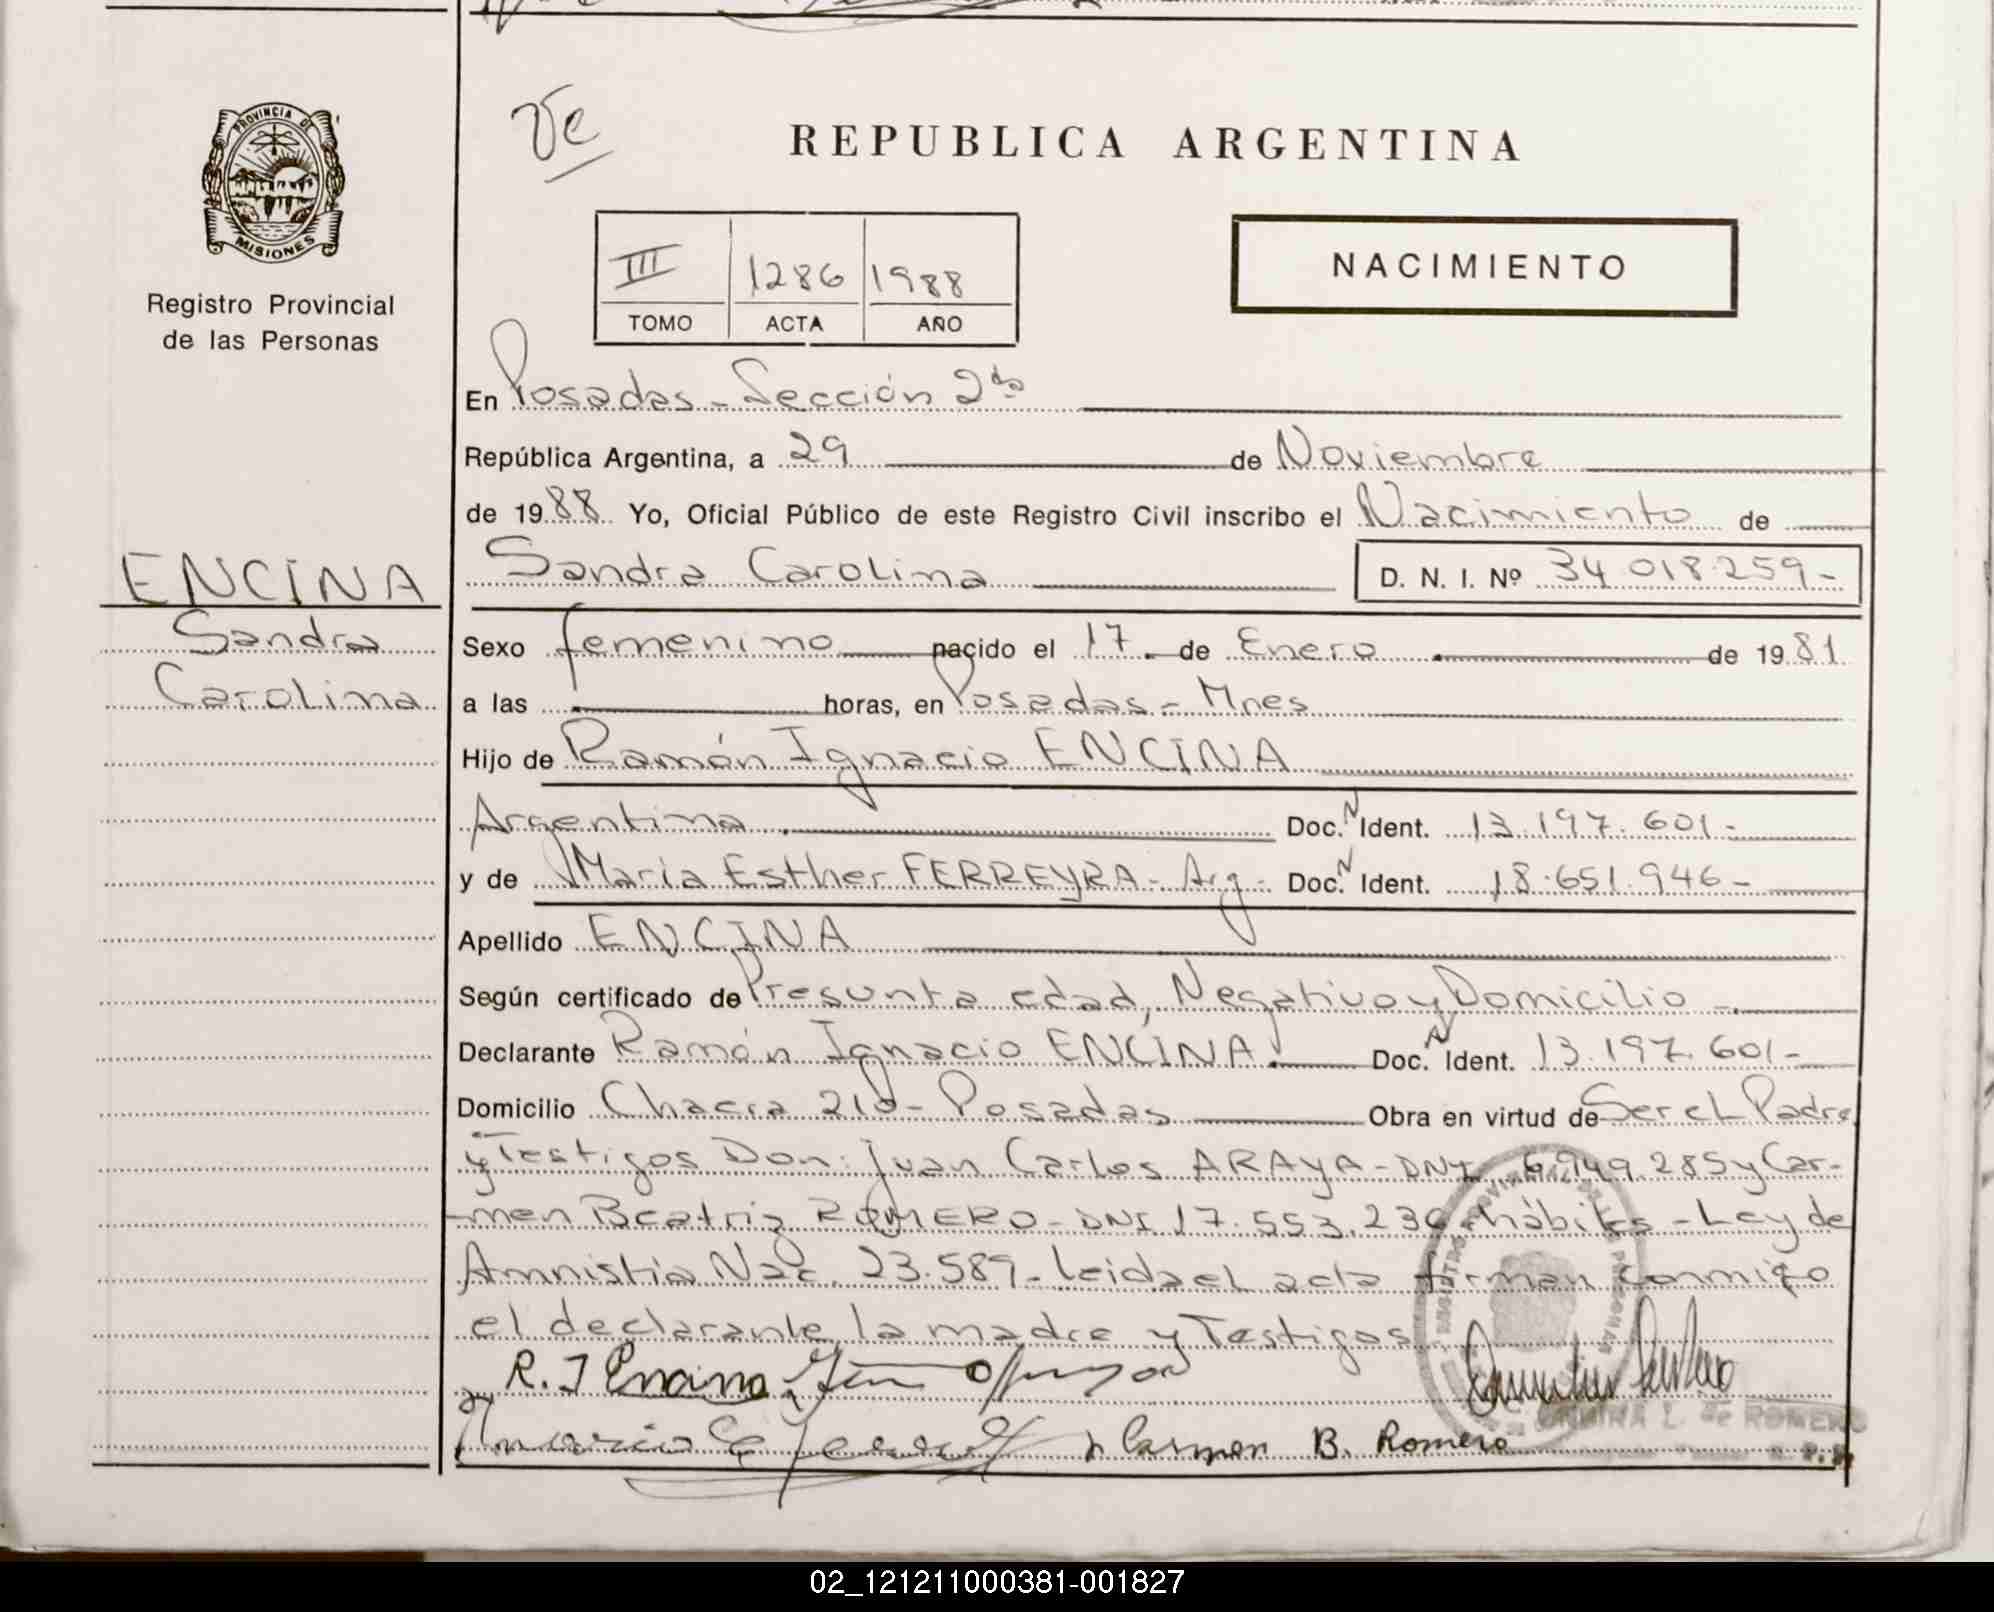 PROVINCIA DE
MISIONES
Registro Provincial
de las Personas
REPUBLICA ARGENTINA
NACIMIENTO
III 1286 1988
TOMO ACTA AÑO
En Posadas - Sección 2da
República Argentina, a 29 de Noviembre
de 1988 Yo, Oficial Público de este Registro Civil inscribo el Nacimiento de
Sandra Carolina D. N. I. Nº 34 018.259-
ENCINA
Sandra
Carolina
Sexo femenino nacido el 17 de Enero de 1981
a las horas, en Posadas - Mnes
Hijo de Ramón Ignacio ENCINA
Argentina Doc. N Ident. 13.197.601-
y de Maria Esther FERREYRA - Arg - Doc. N Ident. 18.651.946-
Apellido ENCINA
Según certificado de Presunta edad, Negativo y Domicilio
Declarante Ramón Ignacio ENCINA Doc. N Ident. 13.197.601-
Domicilio Chacra 210 - Posadas Obra en virtud de Ser el Padre
y Testigos Don: Juan Carlos ARAYA - DNI 6.949.285 y Car-
men Beatriz ROMERO - DNI 17.553.236 - hábiles - Ley de
Amnistia Nac. 23.589 - leida el acta firman conmigo
el declarante, la madre y Testigos
R. I Encina
Carmen B. Romero
L. de ROMERO
02_121211000381-001827